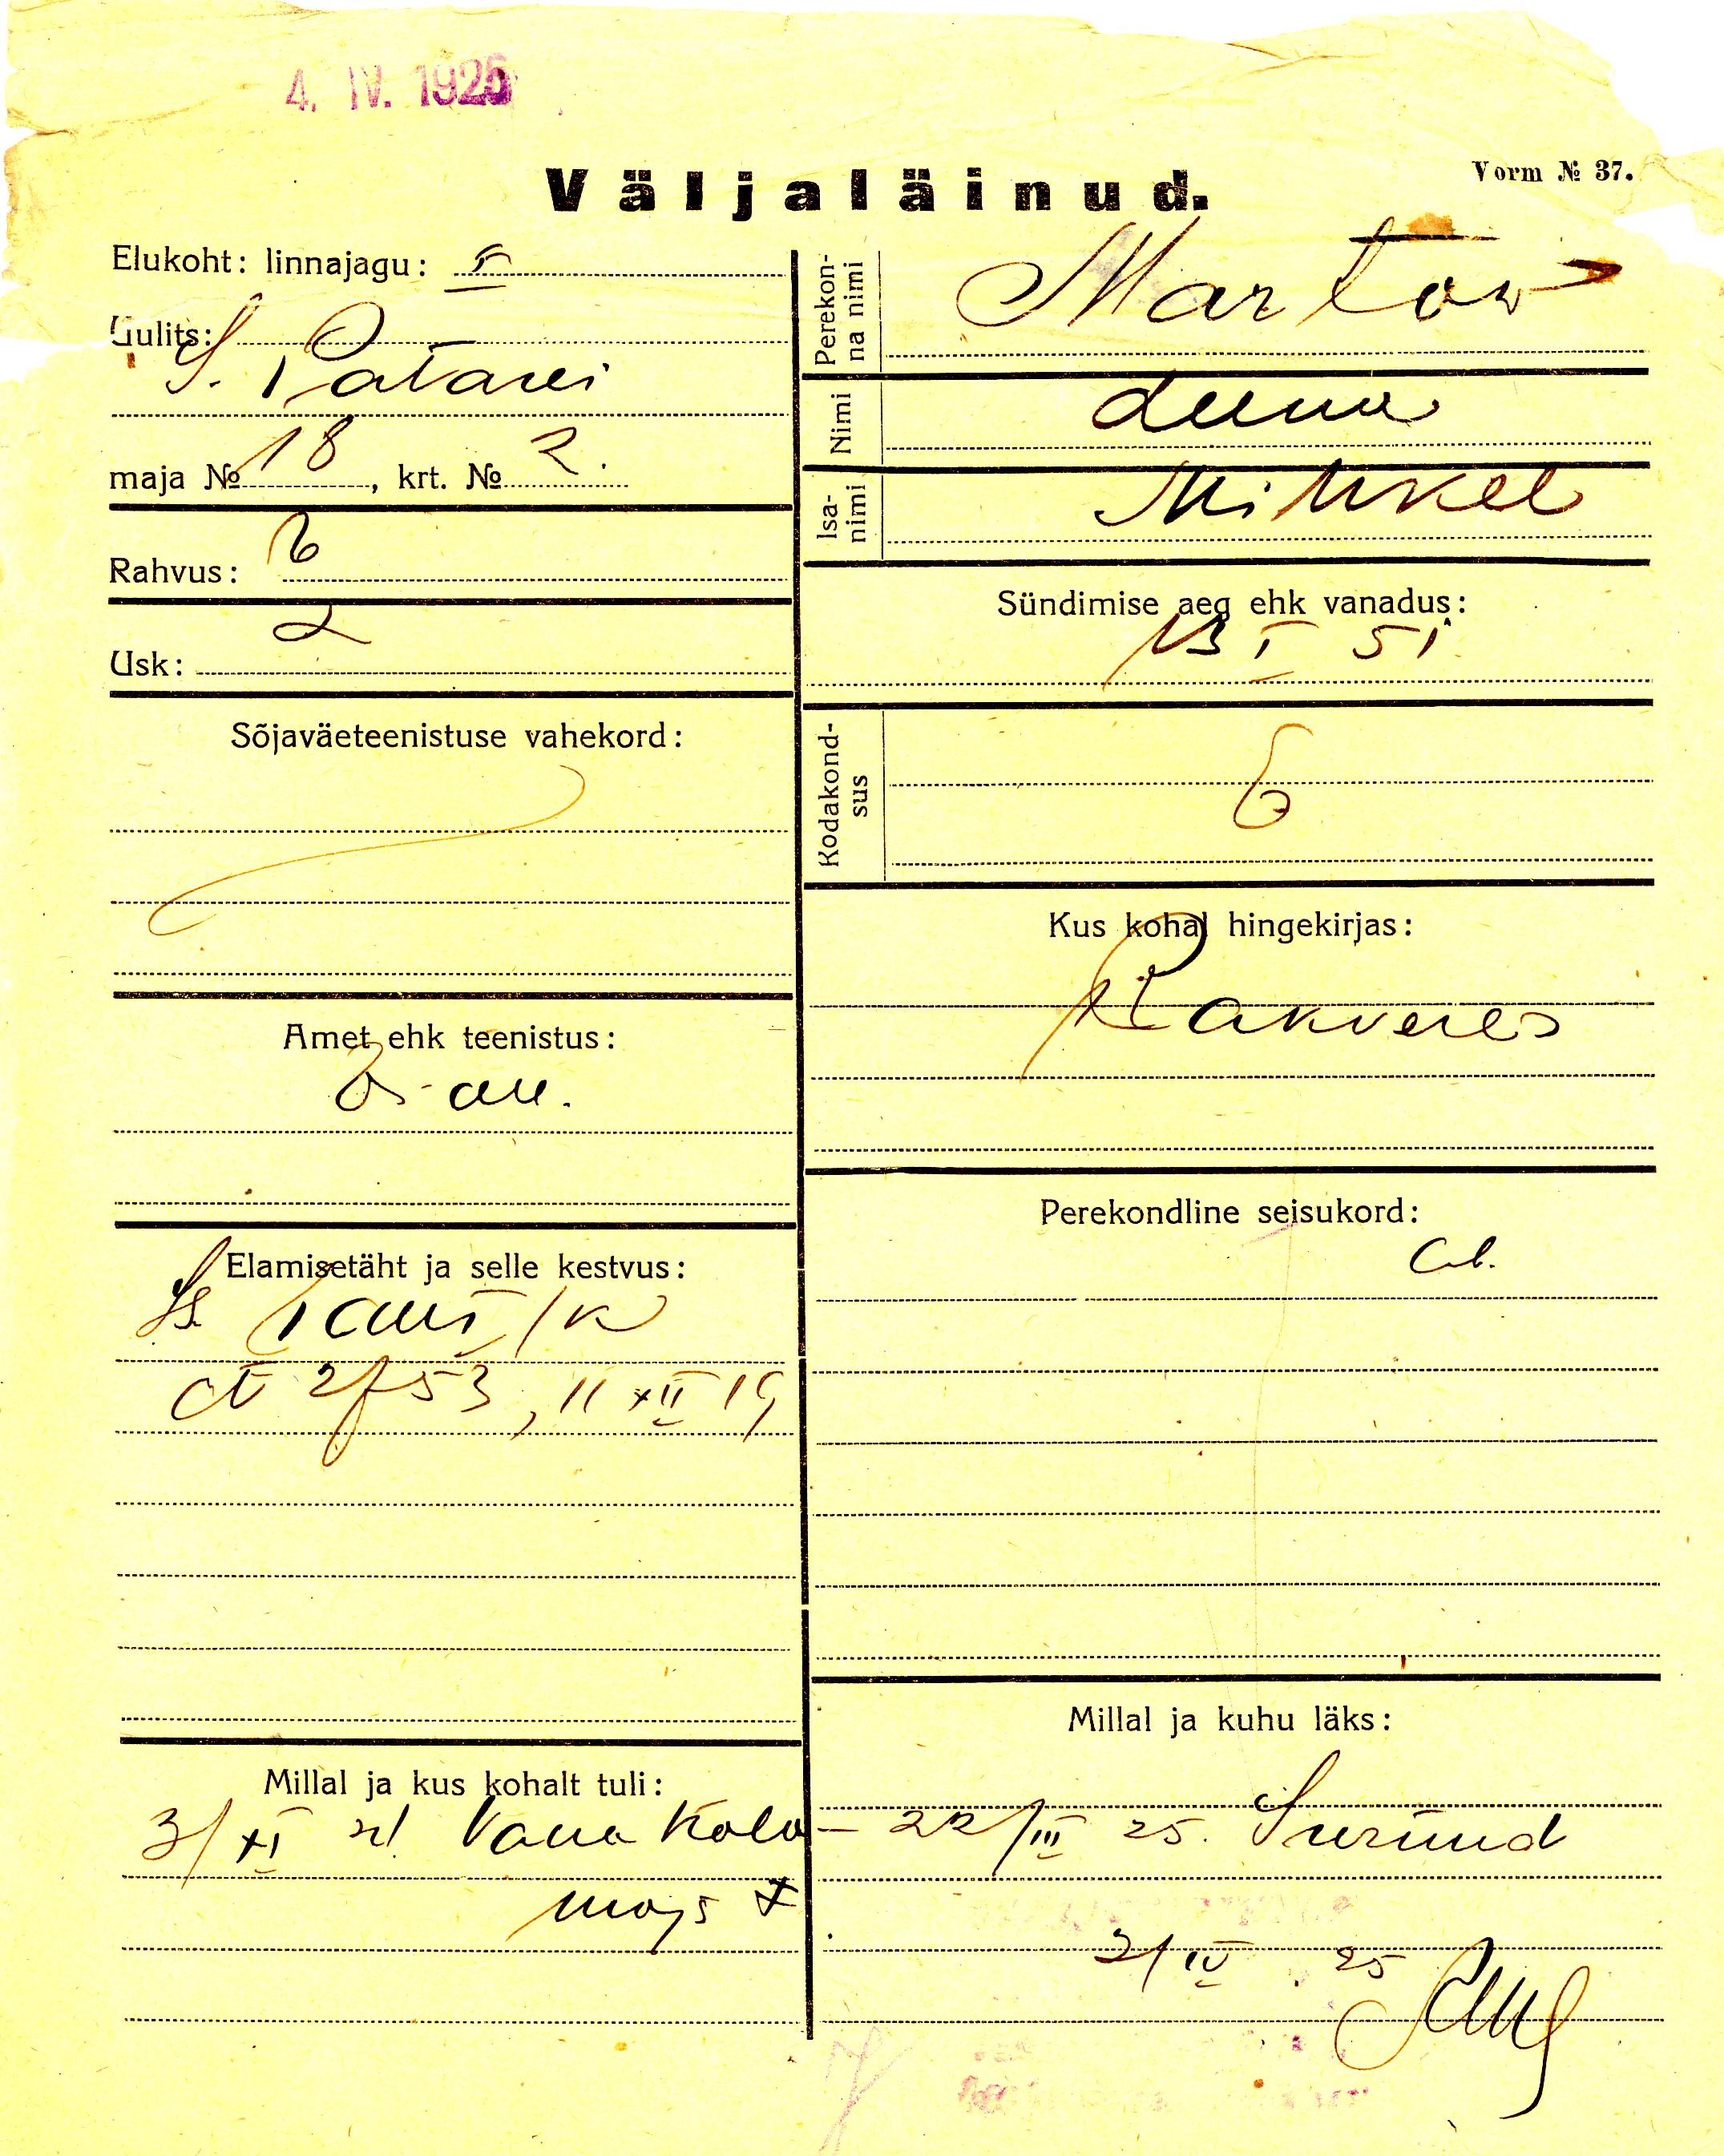 4. IV. 1925
Väljaläinud.
Vorm № 37.
Elukoht: linnajagu: I
Uulits:
S. Patarei
maja № 18, krt. № 2.
Rahvus:
Usk:
Sõjaväeteenistuse vahekord:
Amet ehk teenistus:
Elamisetäht ja selle kestvus:
11 XII 19
Millal ja kus kohalt tuli:
3/XI 21 Vana Kolo-
mojs
Perekon-
na nimi
Martow
Nimi
Leena
Isa-
nimi
Mihkel
Sündimise aeg ehk vanadus:
13 I 51
Kodakond-
sus
Kus kohal hingekirjas:
Rakveres
Perekondline seisukord:
Millal ja kuhu läks:
22/III 25. Surnud
2/IV. 25